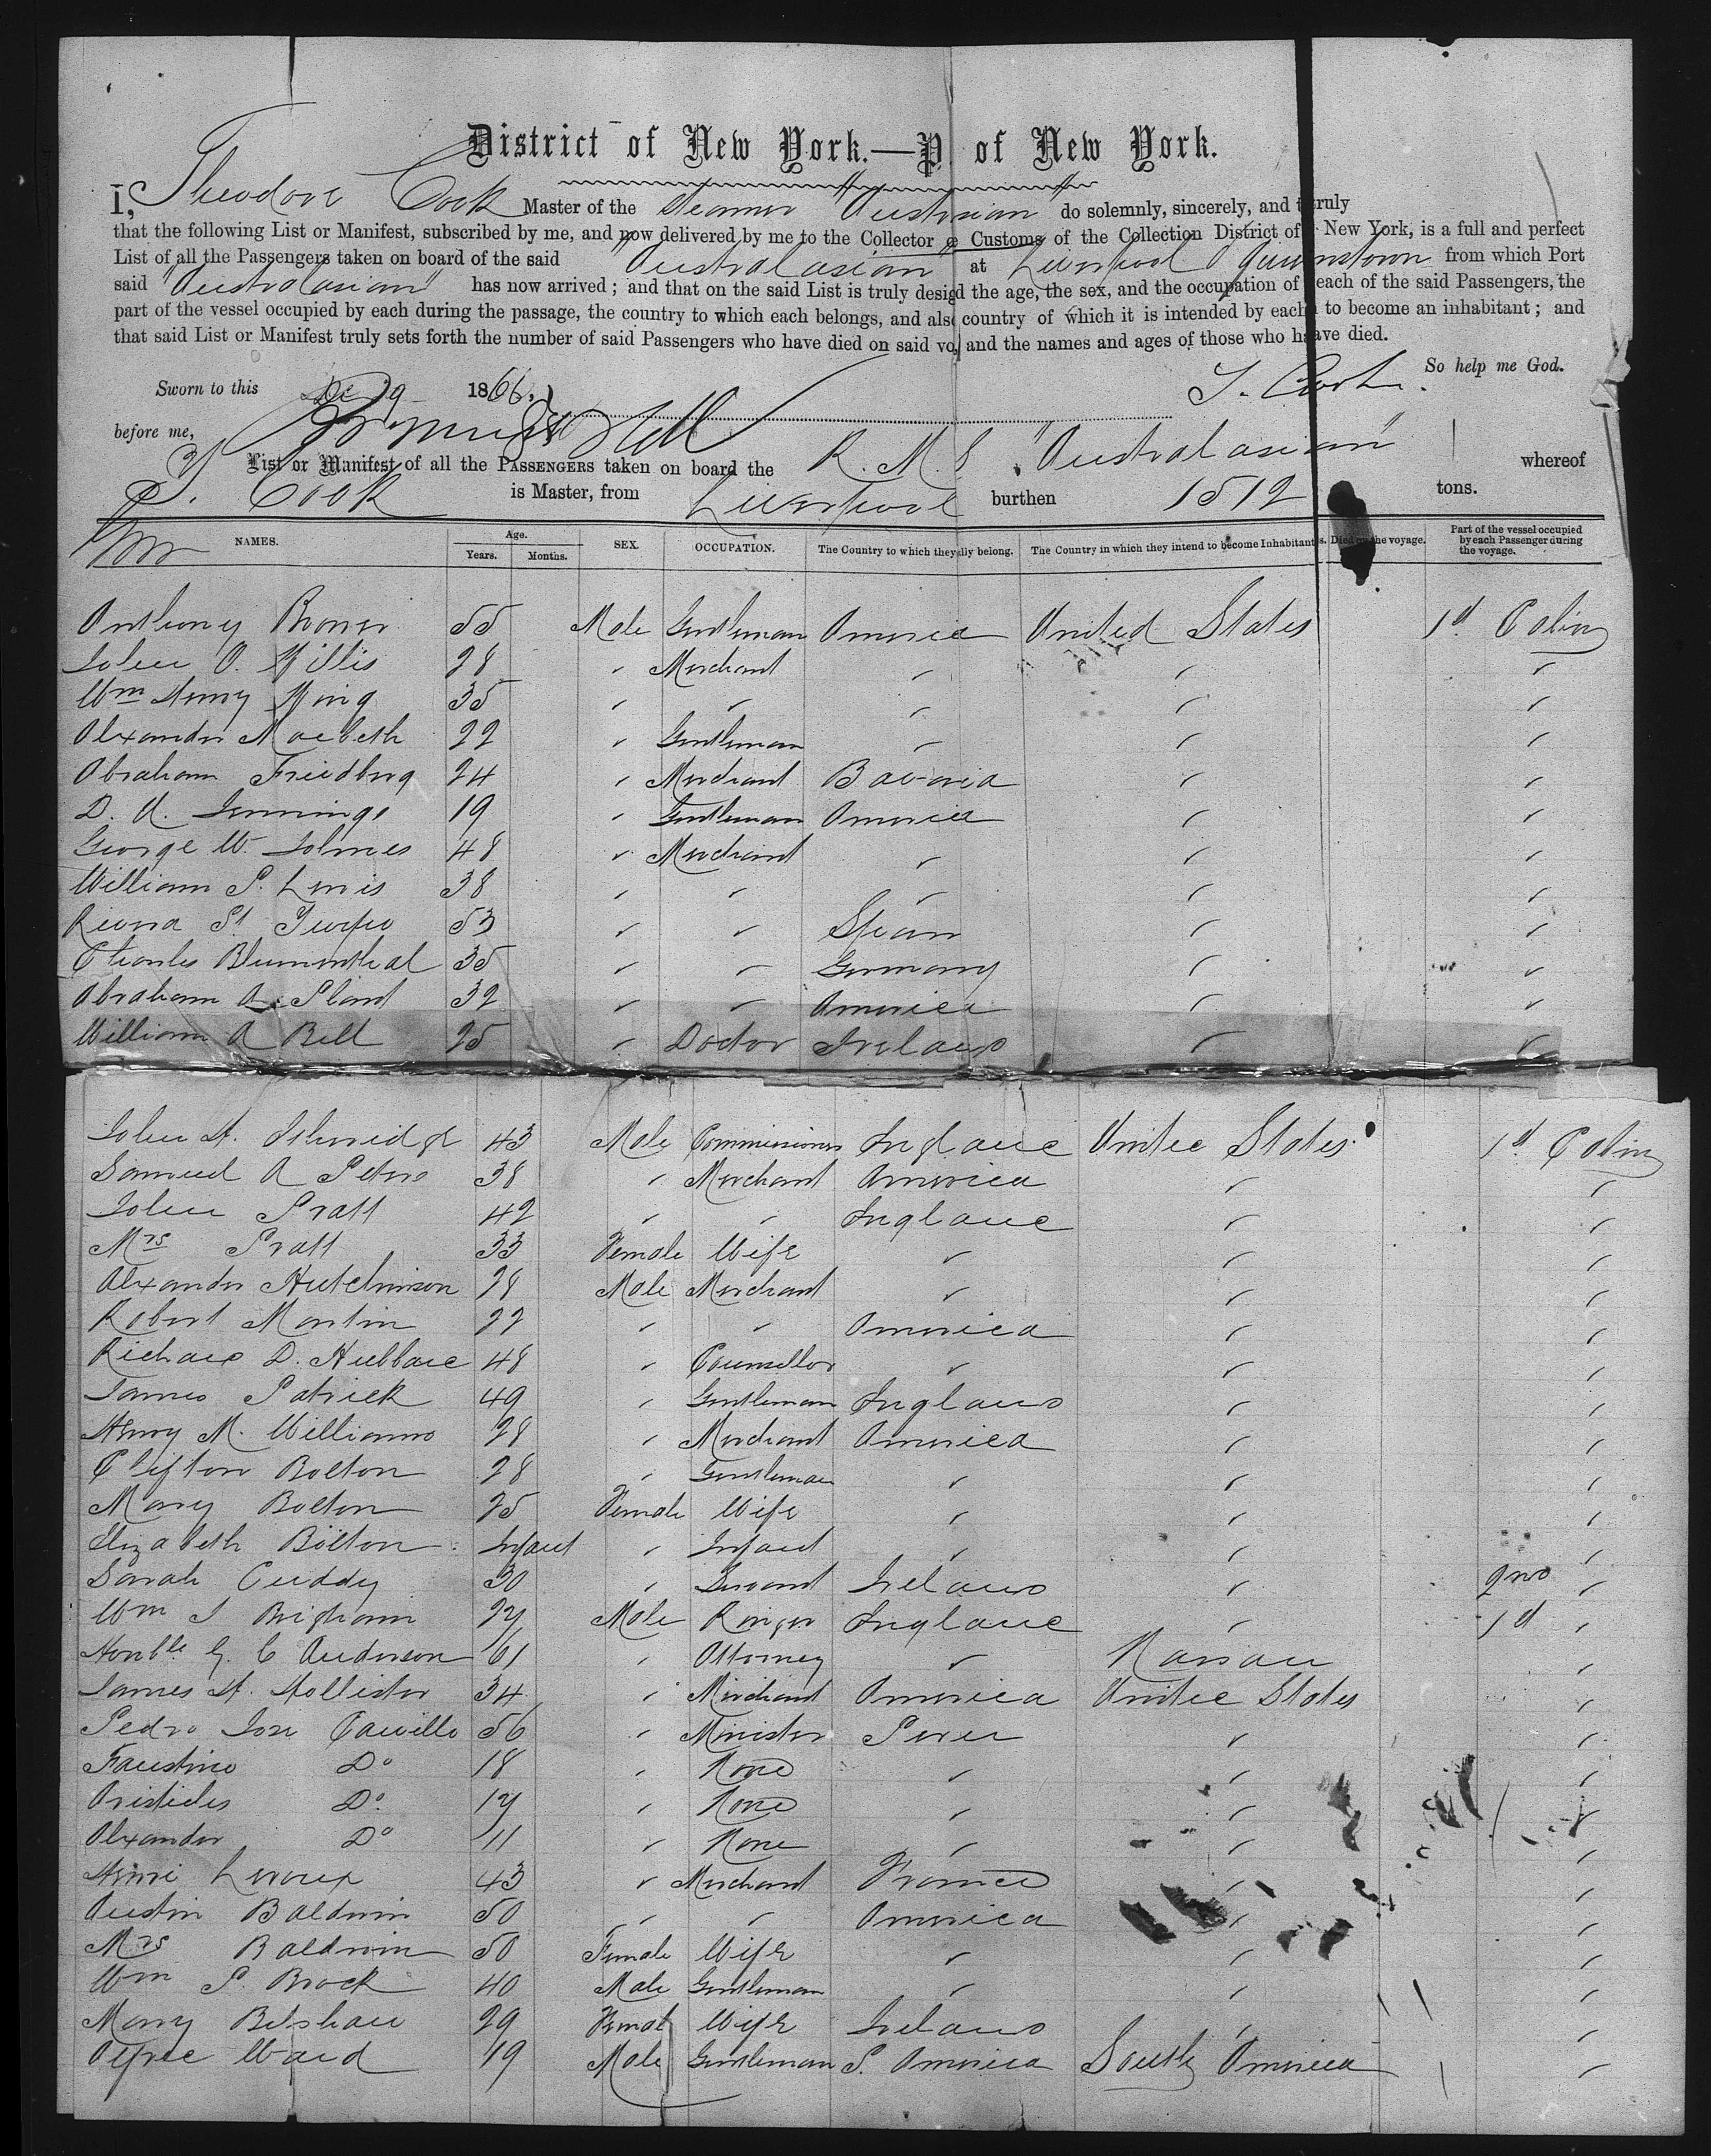 District of New York.—P of New York.
I, Theodore Cook Master of the Steamer "Australasian" do solemnly, sincerely, and truly
that the following List or Manifest, subscribed by me, and now delivered by me to the Collector Customs of the Collection District of New York, is a full and perfect
List of all the Passengers taken on board of the said "Australasian" at Liverpool & Queenstown from which Port
said "Australasian" has now arrived; and that on the said List is truly desigd the age, the sex, and the occupation of each of the said Passengers, the
part of the vessel occupied by each during the passage, the country to which each belongs, and als country of which it is intended by each to become an inhabitant; and
that said List or Manifest truly sets forth the number of said Passengers who have died on said vo, and the names and ages of those who have died.
So help me God.
Sworn to this 19 1866, T. Cook.
before me,
List or Manifest of all the PASSENGERS taken on board the R.M.S "Australasian" whereof
T. Cook is Master, from Liverpool burthen 1512 tons.
NAMES. Age. Years. Months. SEX. OCCUPATION. The Country to which they lly belong. The Country in which they intend to become Inhabitants. Died on the voyage. Part of the vessel occupied by each Passenger during the voyage.
Anthony 55 Male Gentleman America United States 1st Cabin
John A. Willis 28 " Merchant " " "
Wm Henry King 35 " " " " "
Alexander Macbeth 22 " Gentleman " " "
Abraham Friedberg 24 " Merchant Bavaria " "
D. A. Jennings 19 " Gentleman America " "
George W. Holmes 48 " Merchant " " "
William P. Lewis 38 " " " " "
53 " " Spain " "
Charles Blumenthal 35 " " Germany " "
Abraham A. Plant 32 " " America " "
William A Bell 25 " Doctor Ireland " "
John H. 43 Male Commissioner England United States 1st Cabin
Samuel A Peters 38 " Merchant America " "
John Pratt 42 " " England " "
Mrs Pratt 33 Female Wife " " "
Alexander Hutchinson 28 Male Merchant " " "
Robert Martin 22 " " America " "
Richard D. Hubbard 48 " Counsellor " " "
James Patrick 49 " Gentleman England " "
Henry M. Williams 28 " Merchant America " "
Clifton Bolton 28 " Gentleman " " "
Mary Bolton 25 Female Wife " " "
Elizabeth Bolton Infant " Infant " " "
Sarah Cuddy 30 " Servant Ireland " 2nd "
Wm J Brigham 27 Male England " 1st "
Honble G. C Anderson 61 " Attorney " Nassau "
James H. Hollister 34 " Merchant America United States "
Pedro Jose Carrillo 56 " Minister Peru " "
Faustino Do 18 " None " " "
Aristides Do. 17 " None " " "
Alexander Do 11 " None " " "
Henri Leroux 43 " Merchant France " "
Austin Baldwin 50 " " America " "
Mrs Baldwin 50 Female Wife " " "
Wm P. Brock 40 Male Gentleman " " "
Mary Belshaw 29 Female Wife Ireland " "
Alfred Ward 19 Male Gentleman S. America South America "